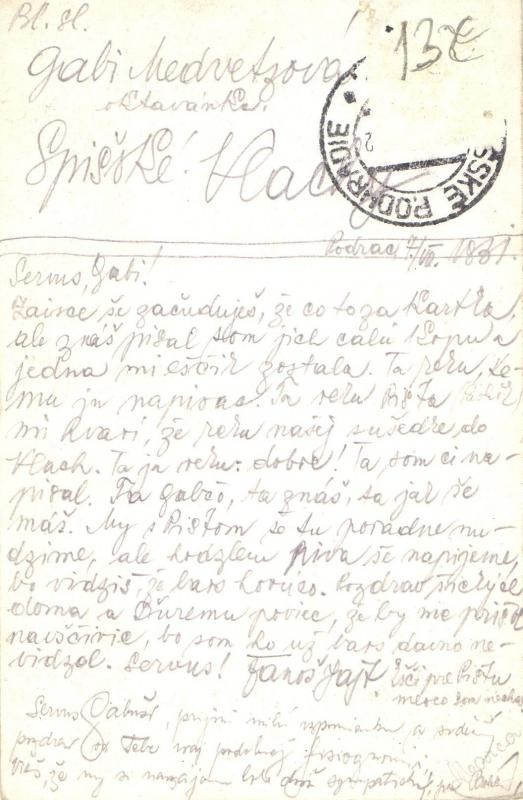 Bl. sl.
13 Kč
Gabi Medvetzová
oktavánka
Spišské Vlachy
SPIŠSKÉ PODHRADIE
2
Podrac 7/VII. 1931.
Servus, Gabi!
Zaisce še začuduješ, že co to za kartka,
ale znáš pisal som jich calú kopu a
jedna mi eščik zostala. Ta reku, ke-
mu ju napisac. Ta reku Pišta
mi hvari, že reku našej sušedke do
Vlach. Ta ja reku: dobre! Ta som ci na-
pisal. Ta Gabčo, ta znáš, ta jak še
máš. My s Pištom še tu poradne nu-
dzime, ale hodzlem piva še napijeme,
bo vidziš, že bars horuco. Pozdrav šických
doma a Ďuremu poviec, že by me prišol
naviščivic, bo som ho už bars davno ne-
vidzol. Servus! Janoš Jajt
Ešči pre Pištu
mesco som nechal
Servus Gabuš, prijmi milú vzpomienku a srdeč
pozdrav od Tebe
Vieš, že my si navzájom boli dosť sympatickí,